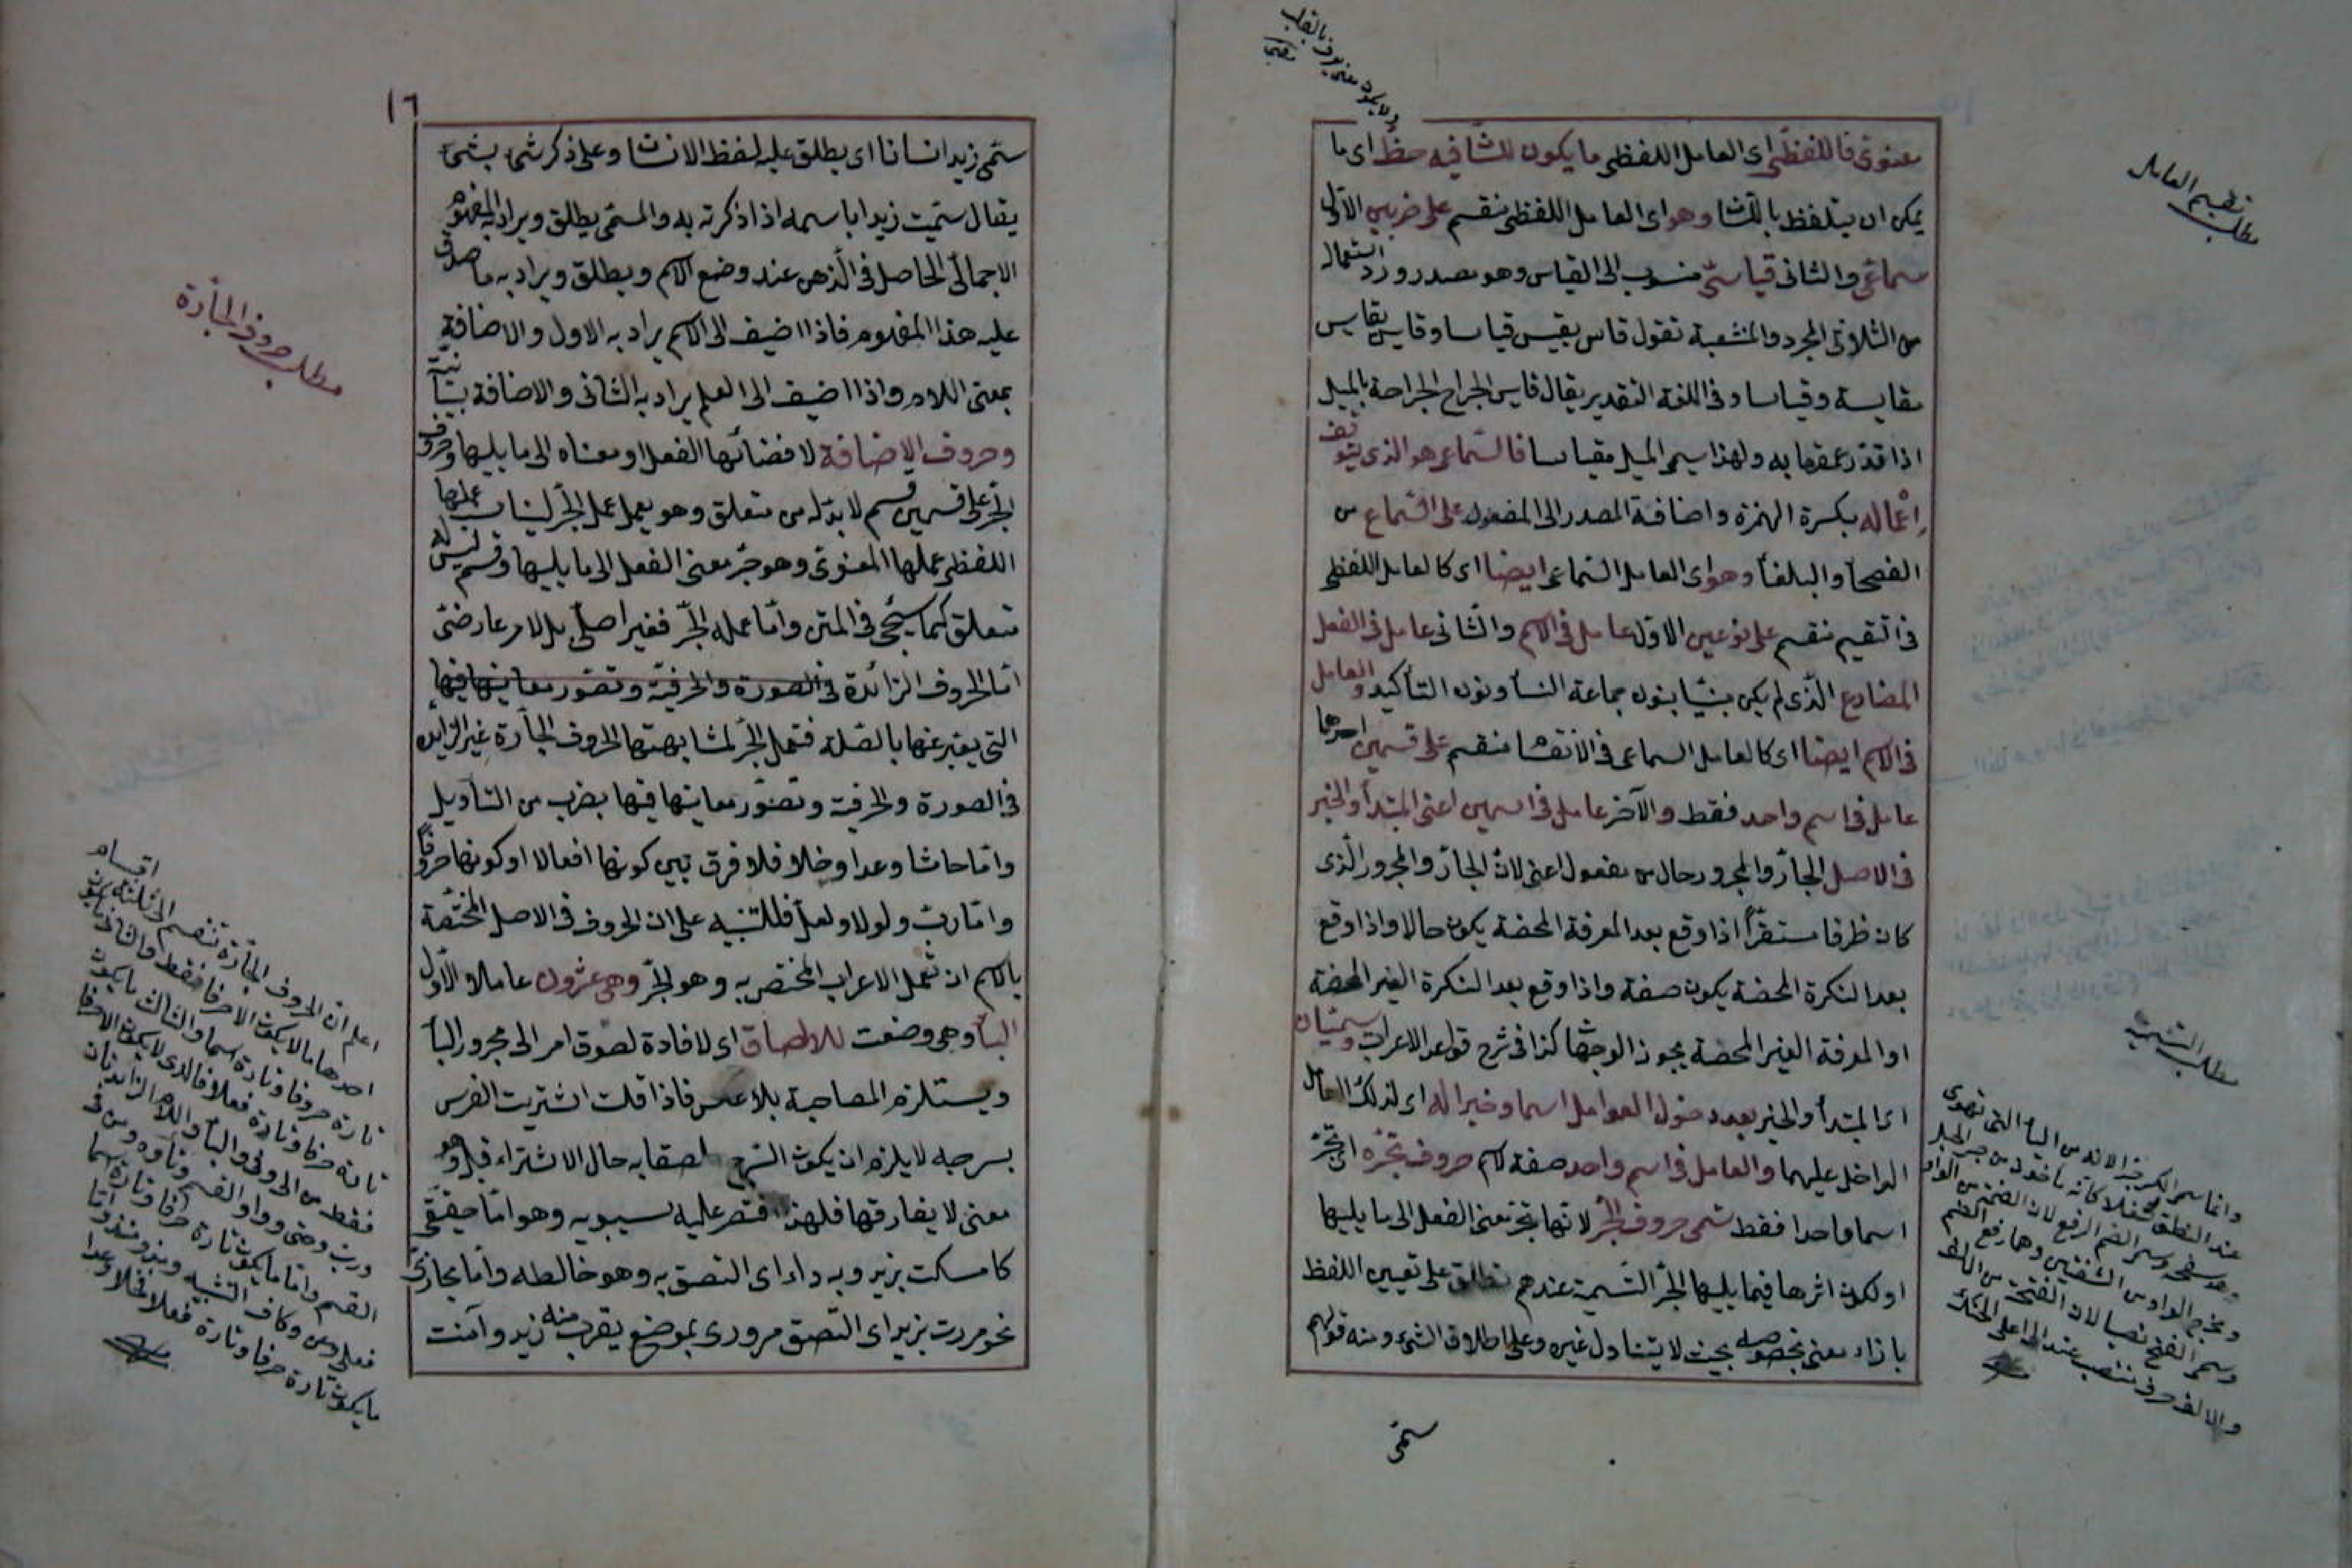 معنوى فاللفظى اى العامل اللفظى ما يكون للسا فيه حظ اى ما
يمكن ان يتلفظ باللسا وهو اى العامل اللفظى منقسم على ضربين الاول
سماعى والثانى قياسى منسوب الى القياس وهو مصدر ورد استعماله
من الثلاثى المجرد والمنشعبة تقول قاس يقيس قياسا وقايس يقايس
مقايسة وقياسا وفى اللغة التقدير يقال قايس الجراح الجراحة بالميل
اذا قدر عمقها به ولهذا يسمى الميل مقياسا فالسماعى هو الذى يتوقف
اعماله بكسرة الهمزة واضافة المصدر الى المفعول على السماع من
الفصحأ والبلغأ وهو اى العامل السماعى ايضا اى كالعامل اللفظى
فى التقسيم منقسم على نوعين الاول عامل فى الاسم والثانى عامل فى الفعل
المضارع الذى لم يكن مبنيا بنون جماعة النسأ ونون التأكيد والعامل
فى الاسم ايضا اى كالعامل السماعى فى الانقسا منقسم على قسمين احدها
عامل فى اسم واحد فقط والآخر عامل فى اسمين اعنى المبتدأ والخبر
فى الاصل الجار والمجرور حال من مفعول اعنى لان الجار والمجرور الذى
كان ظرفا مستقرا اذا وقع بعد المعرفة المحضة يكون حالا واذا وقع
بعد النكرة المحضة يكون صفة واذا وقع بعد النكرة الغير المحضة
او المعرفة الغير المحضة يجوز الوجها كذا فى شرح قواعد الاعراب وسميان
اى المبتدأ والخبر بعد دخول العوامل اسما وخبرا له اى لذلك العامل
الداخل عليهما والعامل فى اسم واحد صفة لاسم حروف تجره اى تجر
اسما واحدا فقط تسمى حروف الجر لانها تجر معنى الفعل الى ما يليها
او لكون اثرها فيما يليها الجر التسمية عندهم تطلق على تعيين اللفظ
بازاء معنى بخصوصه بحيث لا يتناول غيره وعلى اطلاق الشىء ومنه قولهم
سمى
مطلب تقسيم العامل
مطلب التسمية
وانما سمى الكسر جرا لانه من اليأ التى تهوى
١٦
سمى زيد انسانا اى يطلق عليه لفظ الانسا وعلى ذكر شئ بشئ
يقال سميت زيدا باسمه اذا ذكرته به والمسمى يطلق ويراد به المفهوم
الاجمالى الحاصل فى الذهن عند وضع الاسم ويطلق ويراد به ما صدق
عليه هذا المفهوم فاذا اضيف الى الاسم يراد به الاول والاضافة
بمعنى اللام واذا اضيف الى العلم يراد به الثانى والاضافة بيانية
وحروف الاضافة لافضائها الفعل او معناه الى ما يليها وحروف
الجر على قسمين قسم لا بد له من متعلق وهو يعمل عمل الجر ليناسب عملها
اللفظى عملها المعنوى وهو جر معنى الفعل الى ما يليها وقسم ليس له
متعلق كما سيجئ فى المتن واما عمله الجر فغير اصلى بل لامر عارضى
اما الحروف الزائدة فى الصورة والحرفية وتصور معانيها فيها
التى يعبر عنها بالصلة فتعمل الجر لمشابهتها الحروف الجارة غير الزايدة
فى الصورة والحرفية وتصور معانيها فيها بضرب من التأويل
واما حاشا وعدا وخلا فلا فرق بين كونها افعالا او كونها حروفا
واما رب ولولا ولعل فللتنبيه على ان الحروف فى الاصل المختصة
بالاسم ان تعمل الاعراب المختص به وهو الجر وهى عشرون عاملا الاول
البأ وهى وضعت للالصاق اى لافادة لصوق امر الى مجرور البأ
ويستلزم المصاحبة بلا عكس فاذا قلت اشتريت الفرس
بسرجه لا يلزم ان يكون السرج لصقا به حال الاشتراء قيل وهو
معنى لا يفارقها فلهذا اقتصر عليه سيبويه وهو اما حقيقى
كامسكت بزيد وبه داء اى التصق به وهو خالطه واما مجازى
نحو مررت بزيد اى التصق مرورى بموضع يقرب منه زيد وآمنت
مطلب حروف الجارة
اعلم ان الحروف الجارة تنقسم الى ثلاثة اقسام
احدها ما لا يكون الا حرفا فقط والثانى ما يكون
تارة حروفا وتارة اسما والثالث ما يكون
تارة حرفا وتارة فعلا فالذى لا يكون الا حرفا
فقط من الى وفى والبأ واللام
ورب وحتى وواو القسم وتاؤه
القسم واما ما يكون تارة حرفا وتارة اسما
فعلى وعن وكاف التشبيه ومذ ومنذ واما
ما يكون تارة حرفا وتارة فعلا فخلا وعدا